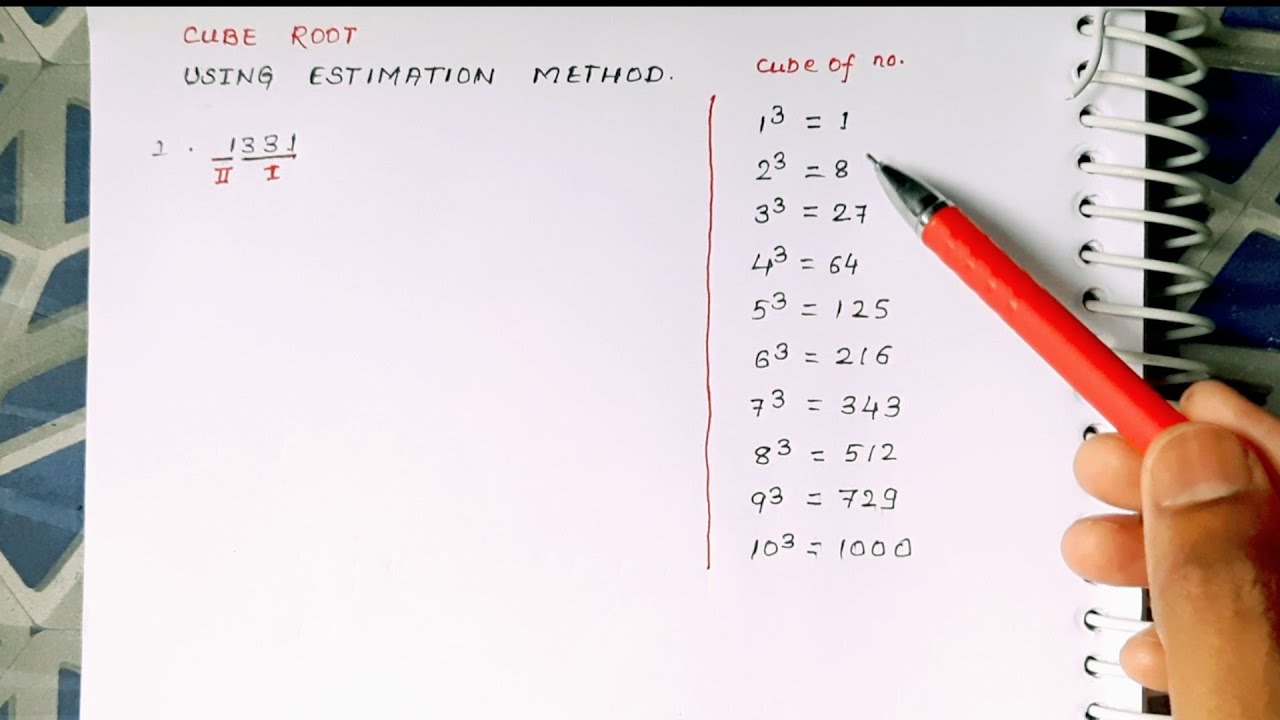 CUBE ROOT
USING ESTIMATION METHOD.
1. 1331
II I
cube of no.
1³ = 1
2³ = 8
3³ = 27
4³ = 64
5³ = 125
6³ = 216
7³ = 343
8³ = 512
9³ = 729
10³ = 1000